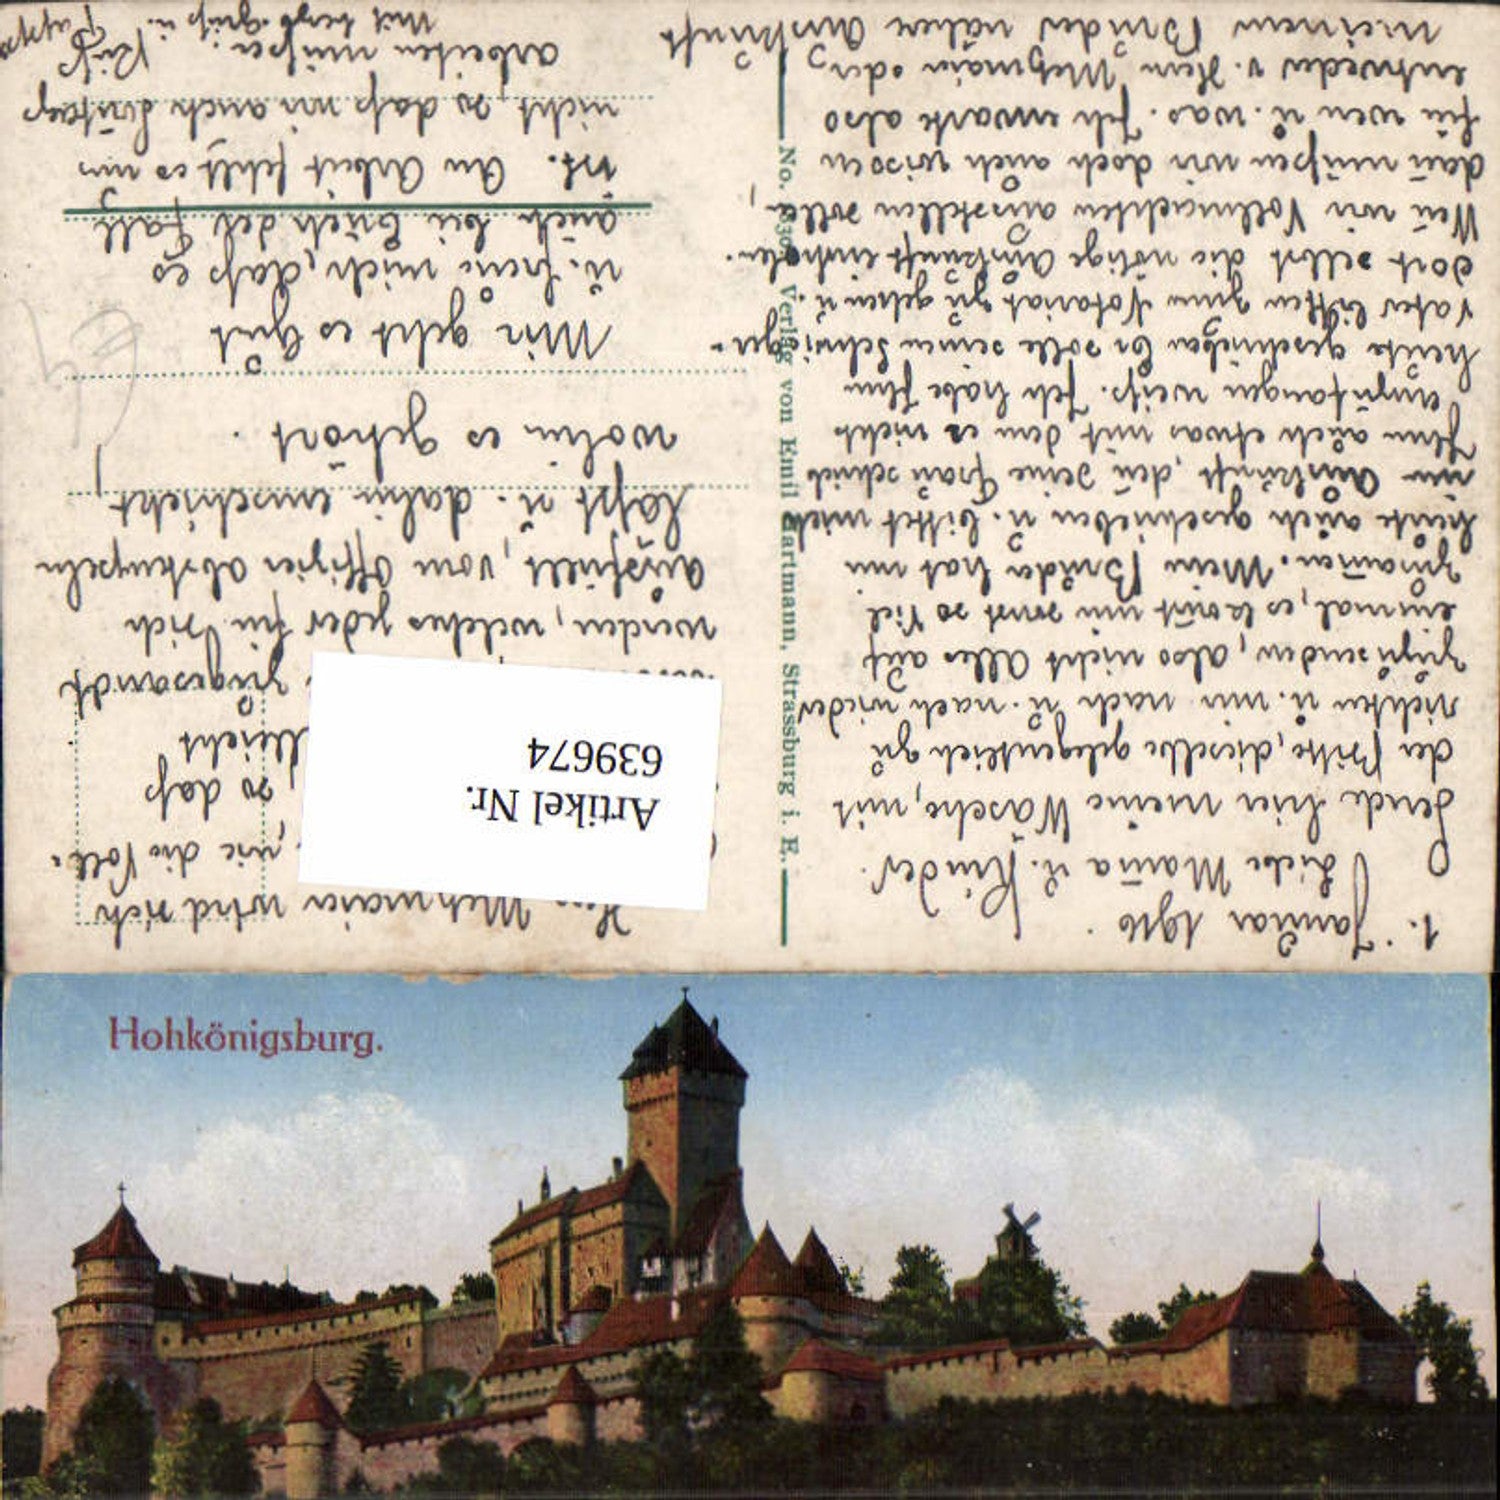 1. Januar 1916.
Liebe Mama u. Kinder.
Sende hier meine Wäsche, mit
der Bitte, dieselbe gelegentlich zu
richten u. mir nach u. nach wieder
zuzusenden, also nicht Alles auf
einmal, es kommt mir sonst so viel
zusammen. Mein Bruder hat mir
heute auch geschrieben u. bittet mich
um Auskunft, den seine Frau schrieb
Ihm auch etwas mit dem er nichts
anzufangen weiß. Ich habe Ihm
heute geschrieben Er solle seinen Schwieger-
vater bitten zum Notariat zu gehen u.
dort selbst die nötige Auskunft einholen.
Wen wir Vollmachten ausstellen sollen,
dan müßen wir doch auch wissen
für wen u. was. Ich erwarte also
entweder v. Herrn Metzmaier oder
meinem Bruder nähere Auskunft
Herr Metzmaier wird sich
wie die Voll-
so daß
zugesandt
werden, welches jeder für sich
ausfüllt, vom Offizier abstempeln
läßt u. dahin einschickt,
wohin es gehört.
Mir geht es gut
u. freue mich, daß es
auch bei Euch der Fall
ist. An Arbeit fehlt es mir
nicht, so daß wir auch Sontags
arbeiten müßen.
Mit herzl. Gruß u. Kuß
Pappa
No. Verlag von Emil Hartmann, Strassburg i. E.
Artikel Nr.
639674
Hohkönigsburg.